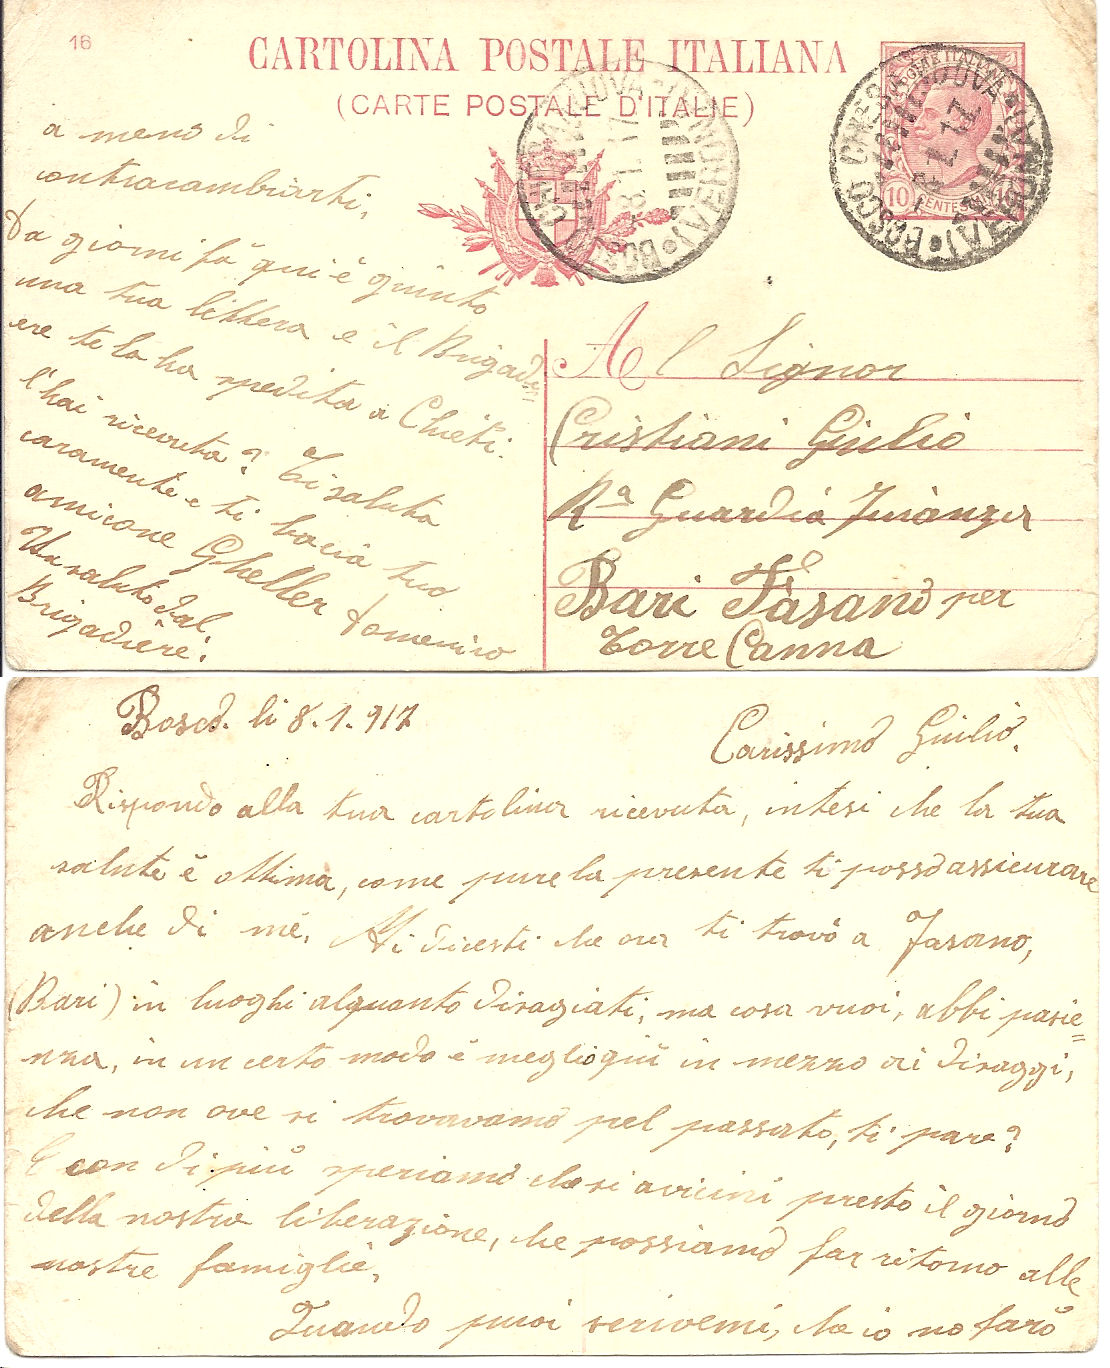 16
CARTOLINA POSTALE ITALIANA
(CARTE POSTALE D'ITALIE)
BOSCO CHIESANUOVA (VERONA)
8.1.17
BOSCO CHIESANUOVA (VERONA)
8.1.17
10 CENTESIMI 10
Al Signor
Cristiani Giulio
Ra Guardia Finànza
Bari Fasano per
Torre Canna
Bosco. li 8.1.917
Carissimo Giulio.
Rispondo alla tua cartolina ricevuta, intesi che la tua
salute è ottima, come pure la presente ti posso assicurare
anche di mé. Mi dicesti che ora ti trovo a Fasano,
(Bari) in luoghi alquanto disagiati, ma cosa vuoi, abbi pasie=
nza, in un certo modo è meglio qui in mezzo ai disaggi,
che non ove si trovavamo pel passato, ti pare?
E con di più speriamo che si avicini presto il giorno
della nostra liberazione, che possiamo far ritorno alle
nostre famiglie.
Quando puoi scrivemi, che io no farò
a meno di
contracambiarti.
Da giorni fá qui è giunto
una tua lettera e il Brigadi=
ere te la ha spedita a Chieti.
l'hai ricevuta? Ti saluta
caramente e ti bacia tuo
amicone Gheller Domenico
Un saluto dal
Brigadiere.